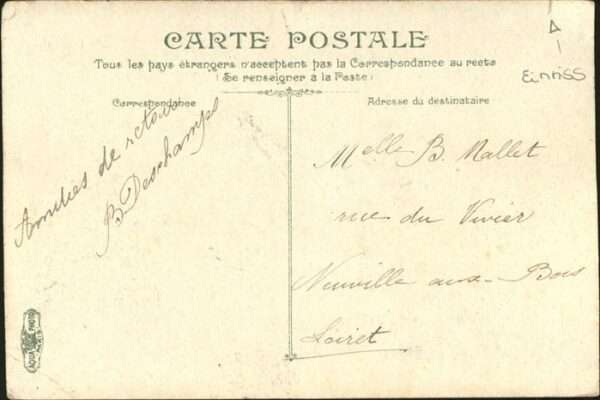 CARTE POSTALE
Tous les pays étrangers n'acceptent pas la Correspondance au recto
(Se renseigner à la Poste)
Correspondance
Adresse du destinataire
Amitiés de retour
B. Deschamps
Melle B. Mallet
rue du Vivier
Neuville aux-Bois
Loiret
AQUA PHOTO
PARIS